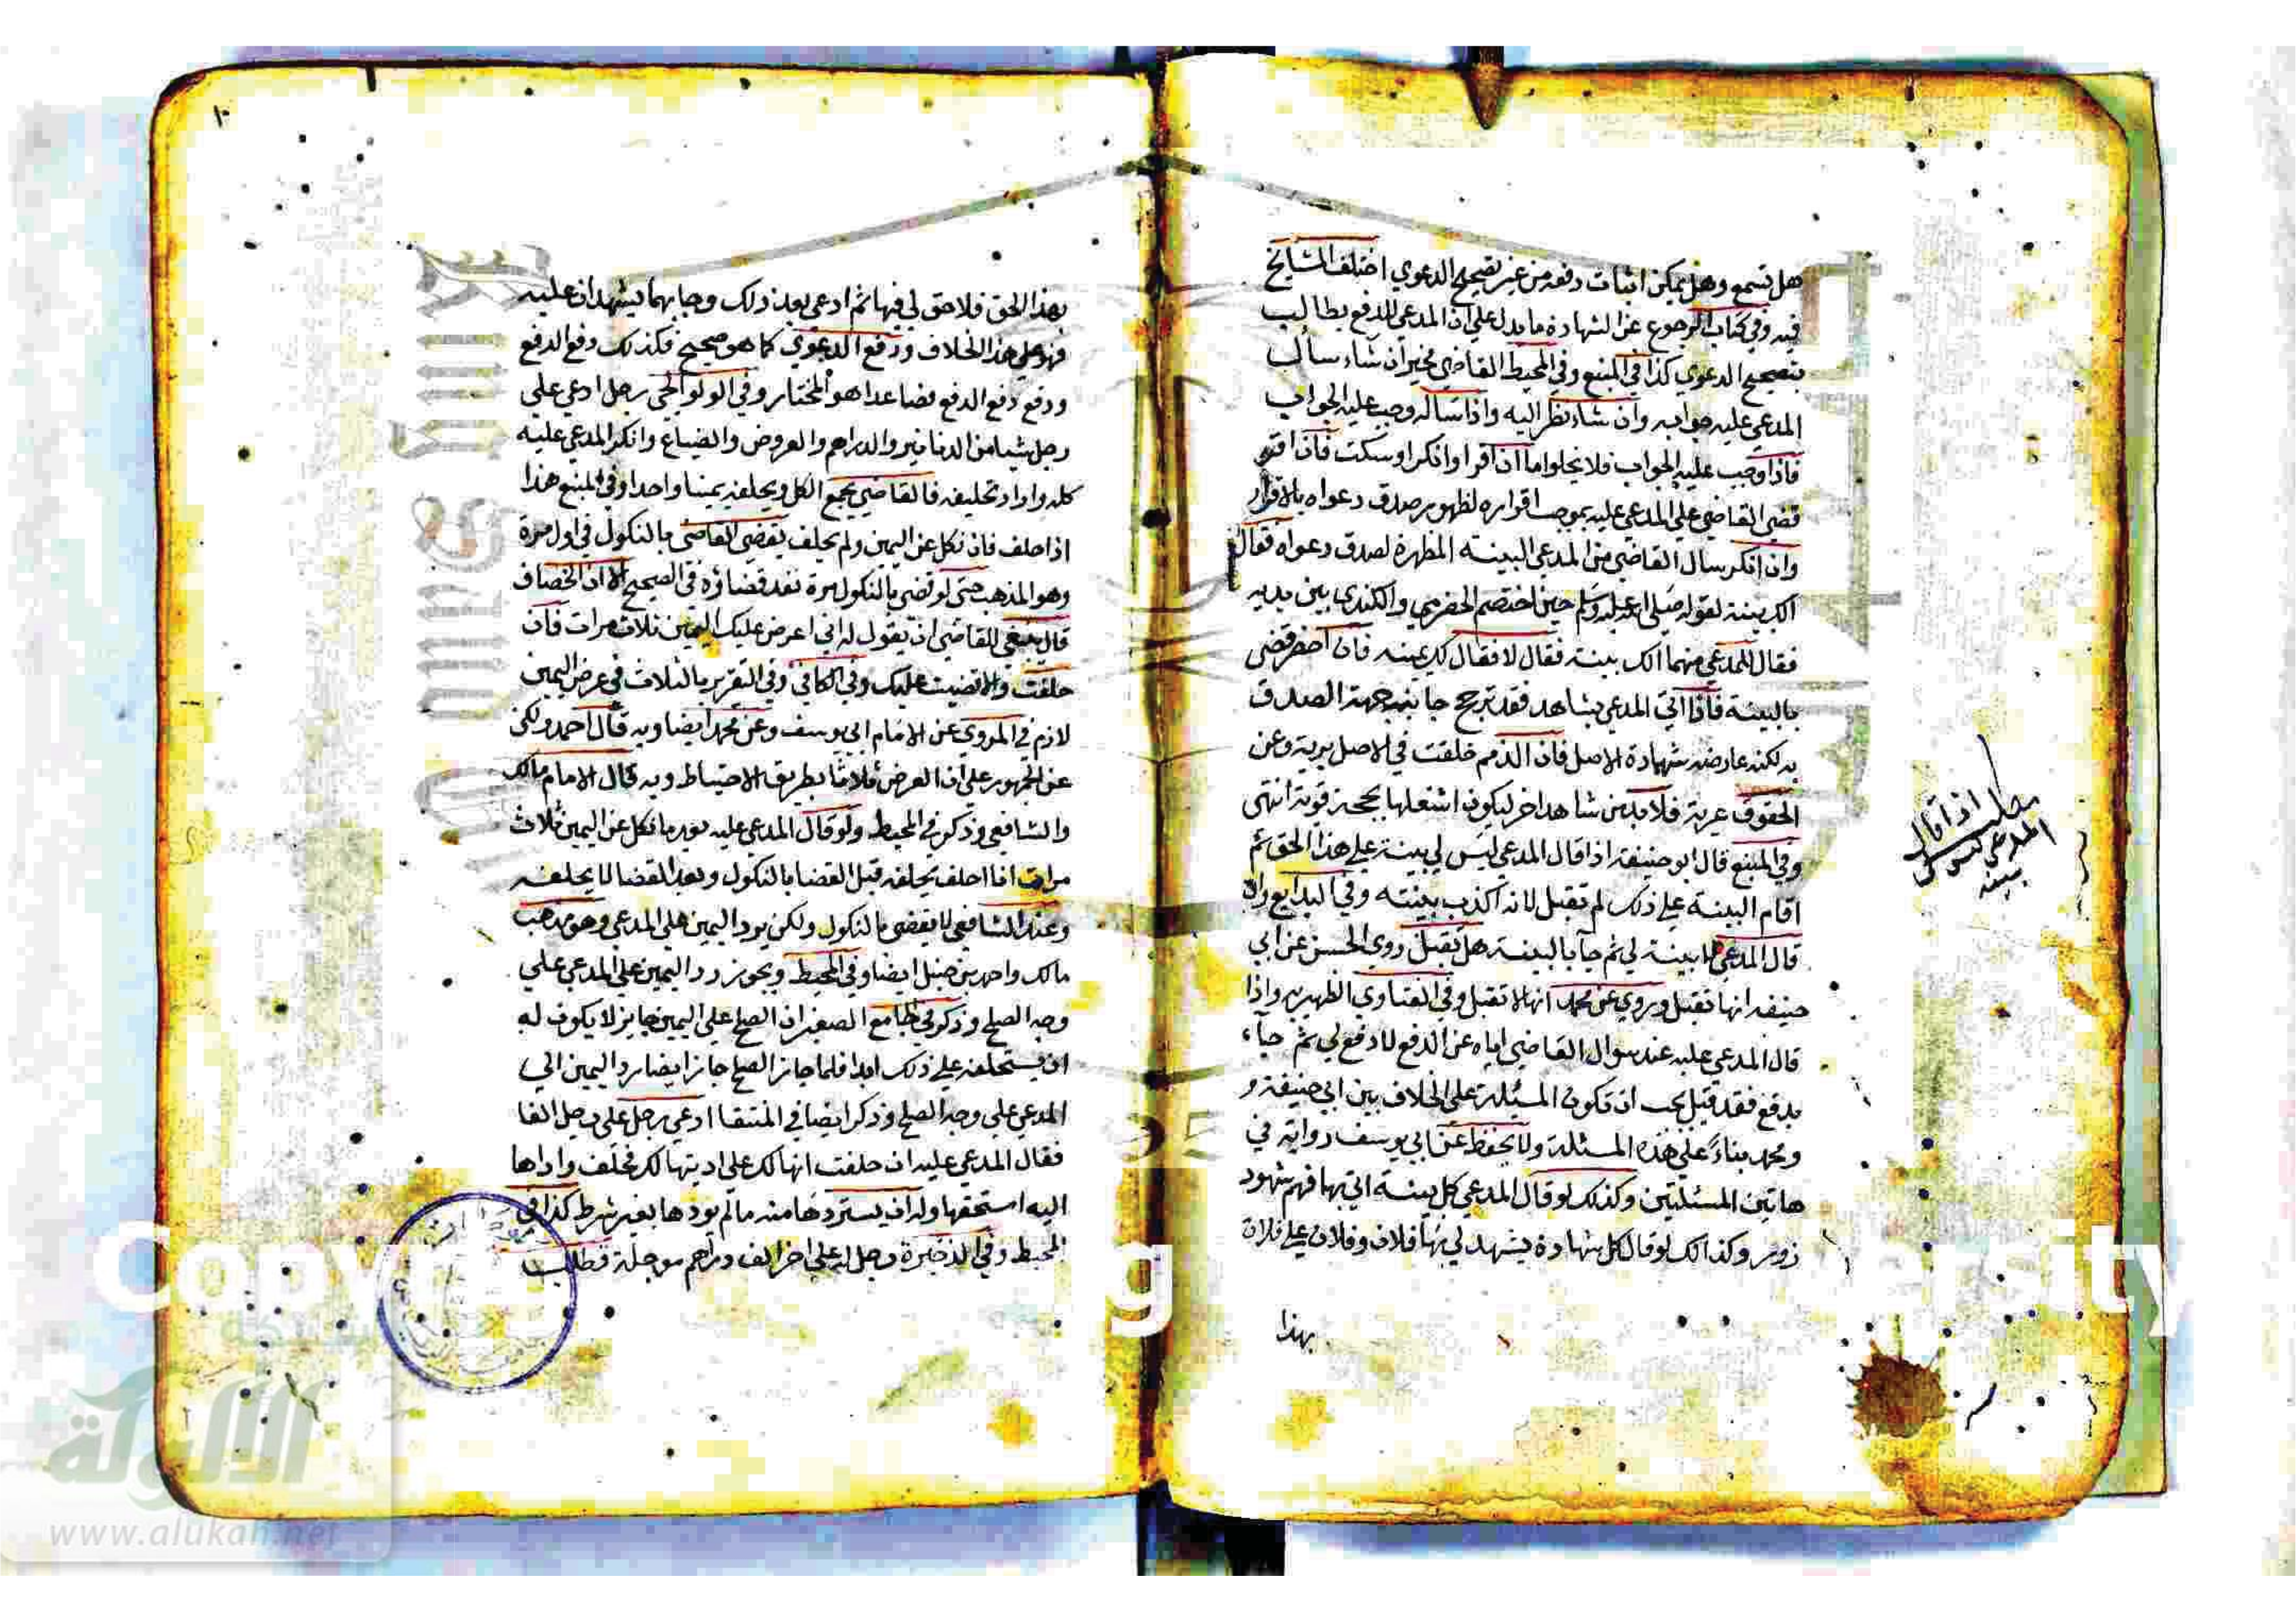 هل تسمع وهل يمكن اثبات دفعه من غير تصحيح الدعوي اختلف المشايخ
فيه وفي كتاب الرجوع عن الشهادة ما يدل علي ان المدعي للدفع يطالب
بتصحيح الدعوي كذا في المنبع وفي المحيط القاضي مخير ان شاء سأل
المدعي عليه جوابه وان شاء نظر اليه واذا ساله وجب عليه الجواب
فاذا وجب عليه الجواب فلا يخلوا ما ان اقرا وانكر اوسكت فان اقر
قضي القاضي علي المدعي عليه بموجب اقراره لظهور صدق دعواه بالاقرار
وان انكر سال القاضي من المدعي البينه المظهرة لصدق دعواه فقال
الك بينة لقوله صلي الله عليه وسلم حين اختصم الحضرمي والكندي بين يديه
فقال للمدعي منهما الك بينة فقال لا فقال لك يمينه فان احضر قضي
بالبينة فاذا اتي المدعي بشاهد فقد ترجح جانبه جهة الصدق
به لكنه عارضه شهادة الاصل فان الذمم خلقت في الاصل برية وعن
الحقوق عرية فلا بد من شاهد اخر ليكون اشتغلها بحجة قوية انتهي
وفي المنبع قال ابو حنيفة اذا قال المدعي ليس لي بينة علي هذا الحق ثم
اقام البينة علي ذلك لم تقبل لانه اكذب بينته وفي البدايع وان
قال المدعي لا بينة لي ثم جآ بالبينة هل تقبل روي الحسن عن ابي
حنيفه انها تقبل وروي عن محمد انها لا تقبل وفي الفتاوي الظهيريه واذا
قال المدعي عليه عند سوال القاضي اياه عن الدفع لا دفع لي ثم جآء
بدفع فقد قيل يجب ان تكون المسئلة علي الخلاف بين ابي حنيفة و
ومحمد بناءً علي هذه المسئلة ولا يحفظ عن ابي يوسف رواية في
هاتين المسئلتين وكذلك لو قال المدعي كل بينة اتي بها فهم شهود
زور وكذا لك لو قال كل شهادة يشهد لي بها فلان وفلان علي فلان
بهذا
مطلب اذا قال
المدعي ليس لي
بينه
١٠
بهذا الحق فلا حق لي فيها ثم ادعي بعد ذلك وجا بهما يشهدان عليه
فهو علي هذا الخلاف ودفع الدعوي كما هو صحيح فكذلك دفع الدفع
ودفع دفع الدفع فصاعدا هو المختار وفي الولوالجي رجل ادعي علي
رجل شيا من الدنانير والدراهم والعروض والضياع وانكر المدعي عليه
كله واراد تحليفه فالقاضي يجمع الكل ويحلفه يمينا واحدا وفي المنبع هذا
اذا حلف فان نكل عن اليمين ولم يحلف يقضي القاضي بالنكول في اول مرة
وهو المذهب حتي لو قضي بالنكول مرة نفذ قضاؤه في الصحيح الا ان الخصاف
قال ينبغي للقاضي ان يقول له اني اعرض عليك اليمين ثلاث مرات فان
حلفت والا قضيت عليك وفي الكافي وفي التقرير بالثلاث في عرض اليمين
لازم في المروي عن الامام ابي يوسف وعن محمد ايضا وبه قال احمد ولكن
عن الجمهور علي ان العرض ثلاثا بطريق الاحتياط وبه قال الامام مالك
والشافعي وذكر في المحيط ولو قال المدعي عليه بعد ما نكل عن اليمين ثلاث
مرات انا احلف يحلفه قبل القضا بالنكول وبعد القضا لا يحلفه
وعند الشافعي لا يقضي بالنكول ولكن يرد اليمين علي المدعي وهو مذهب
مالك واحمد بن حنبل ايضا وفي المحيط ويجوز رد اليمين علي المدعي علي
وجه الصلح وذكر في الجامع الصغير ان الصلح علي اليمين جايز لا يكون له
ان يستحلفه علي ذلك ابدا فلما جاز الصلح جاز ايضا رد اليمين الي
المدعي علي وجه الصلح وذكر ايضا في المنتقا ادعي رجل علي رجل الفا
فقال المدعي عليه ان حلفت انها لك علي اديتها لك فحلف واداها
اليه استحقها وله ان يستردها منه مالم يودها بغير شرط كذا في
المحيط وفي الذخيرة رجل له علي اخر الف دراهم موجلة فطلب
الألوكة
www.alukah.net